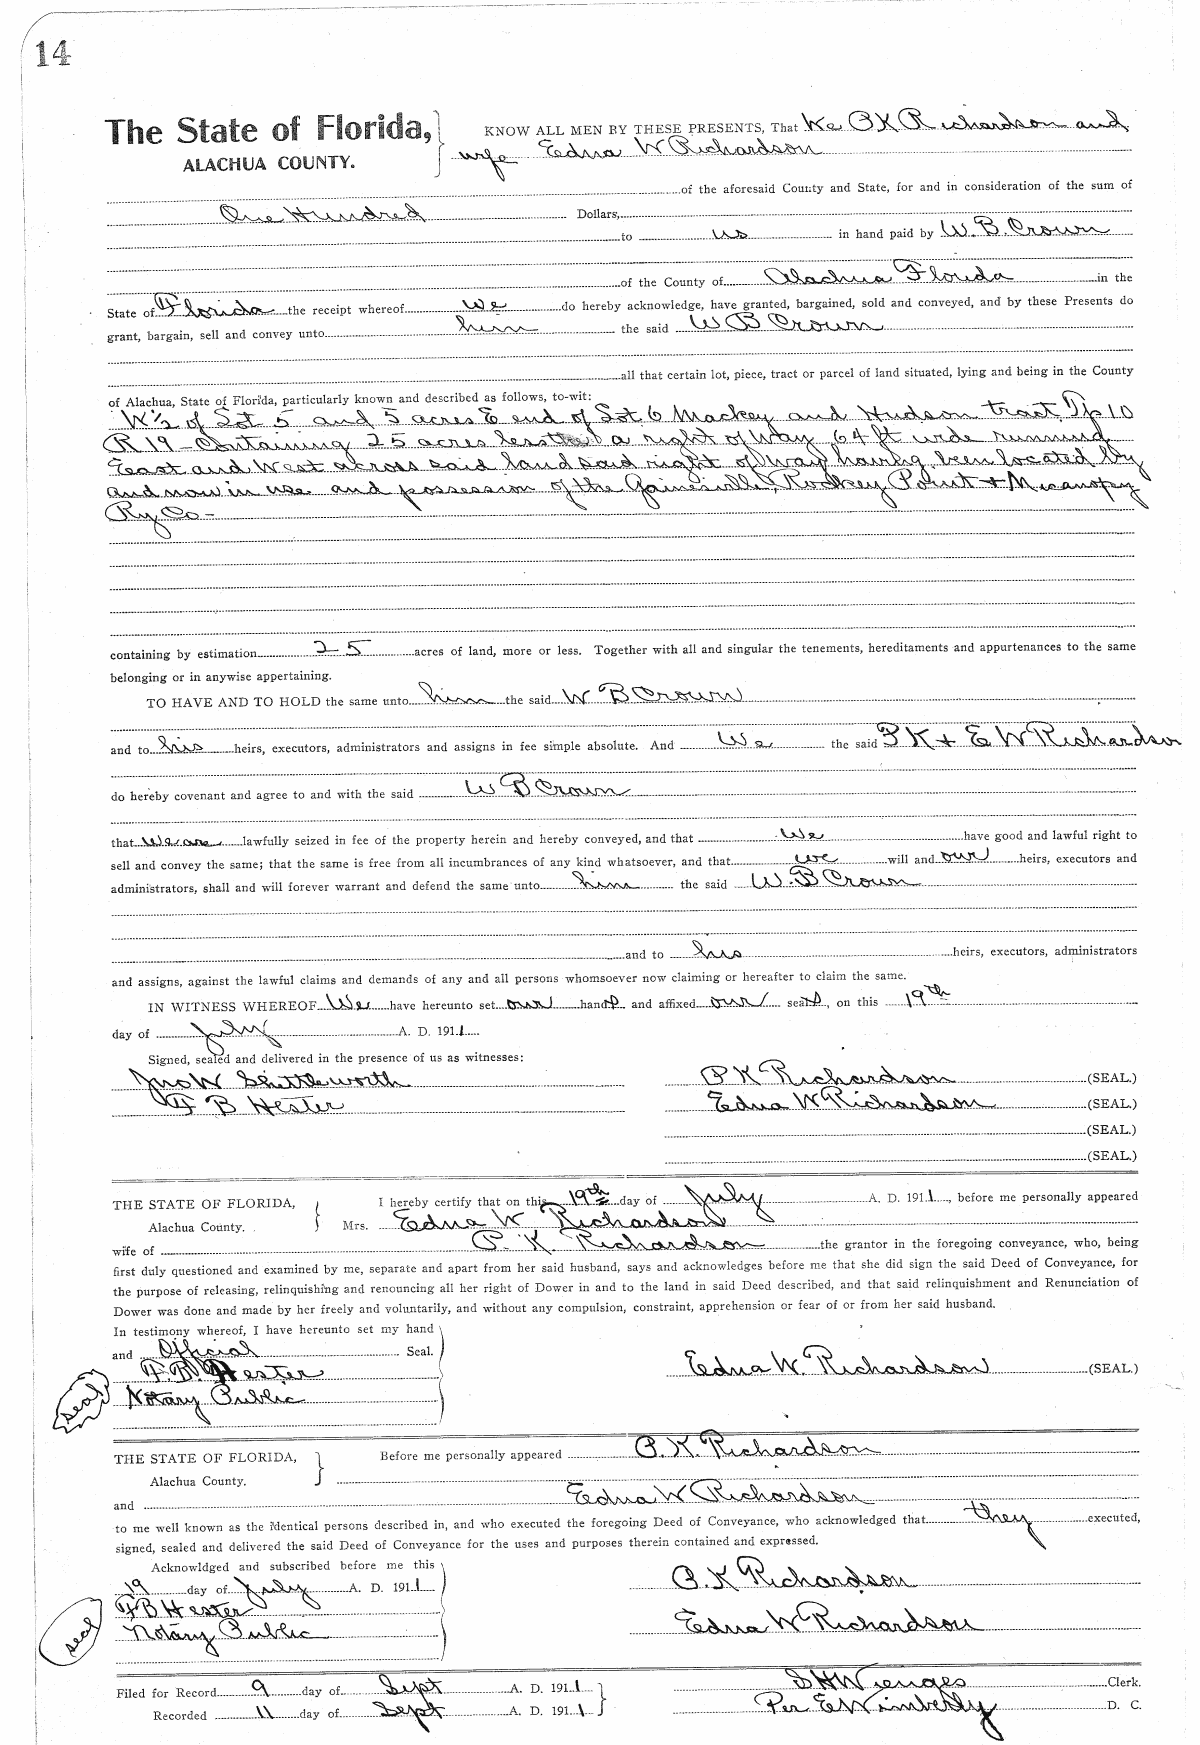 14
The State of Florida, KNOW ALL MEN BY THESE PRESENTS, That We P K Richardson and
ALACHUA COUNTY. wife Edna W Richardson
of the aforesaid County and State, for and in consideration of the sum of
One Hundred Dollars,
to us in hand paid by W. B. Crown
of the County of Alachua Florida in the
State of Florida the receipt whereof we do hereby acknowledge, have granted, bargained, sold and conveyed, and by these Presents do
grant, bargain, sell and convey unto him the said W B Crown
all that certain lot, piece, tract or parcel of land situated, lying and being in the County
of Alachua, State of Florida, particularly known and described as follows, to-wit:
W½ of Lot 5 and 5 acres E end of Lot 6 Mackey and Hudson tract Tp 10
R 19 - Containing 25 acres less a right of way 64 ft wide running
East and West across said land said right of way having been located by
and now in use and possession of the Gainesville, Rockey Point + Micanopy
Ry Co -
containing by estimation 25 acres of land, more or less. Together with all and singular the tenements, hereditaments and appurtenances to the same
belonging or in anywise appertaining.
TO HAVE AND TO HOLD the same unto him the said W B Crown
and to his heirs, executors, administrators and assigns in fee simple absolute. And We the said P K + E W Richardson
do hereby covenant and agree to and with the said W B Crown
that We are lawfully seized in fee of the property herein and hereby conveyed, and that We have good and lawful right to
sell and convey the same; that the same is free from all incumbrances of any kind whatsoever, and that we will and our heirs, executors and
administrators, shall and will forever warrant and defend the same unto him the said W. B Crown
and to his heirs, executors, administrators
and assigns, against the lawful claims and demands of any and all persons whomsoever now claiming or hereafter to claim the same.
IN WITNESS WHEREOF We have hereunto set our hands and affixed our seals, on this 19th
day of July A. D. 1911
Signed, sealed and delivered in the presence of us as witnesses:
Jno W Shettleworth P K Richardson (SEAL.)
F B Hester Edna W Richardson (SEAL.)
(SEAL.)
(SEAL.)
THE STATE OF FLORIDA, I hereby certify that on this 19th day of July A. D. 1911, before me personally appeared
Alachua County. Mrs. Edna W Richardson
wife of P. K. Richardson the grantor in the foregoing conveyance, who, being
first duly questioned and examined by me, separate and apart from her said husband, says and acknowledges before me that she did sign the said Deed of Conveyance, for
the purpose of releasing, relinquishing and renouncing all her right of Dower in and to the land in said Deed described, and that said relinquishment and Renunciation of
Dower was done and made by her freely and voluntarily, and without any compulsion, constraint, apprehension or fear of or from her said husband.
In testimony whereof, I have hereunto set my hand
and Official Seal.
F. B. Hester Edna W. Richardson (SEAL.)
seal Notary Public
THE STATE OF FLORIDA, Before me personally appeared P. K. Richardson
Alachua County.
and Edna W Richardson
to me well known as the identical persons described in, and who executed the foregoing Deed of Conveyance, who acknowledged that they executed,
signed, sealed and delivered the said Deed of Conveyance for the uses and purposes therein contained and expressed.
Acknowldged and subscribed before me this
19 day of July A. D. 1911 P. K Richardson
F B Hester
seal Notary Public Edna W Richardson
Filed for Record 9 day of Sept A. D. 1911 S H Wienges Clerk.
Recorded 11 day of Sept A. D. 1911 Per E Wimberly D. C.